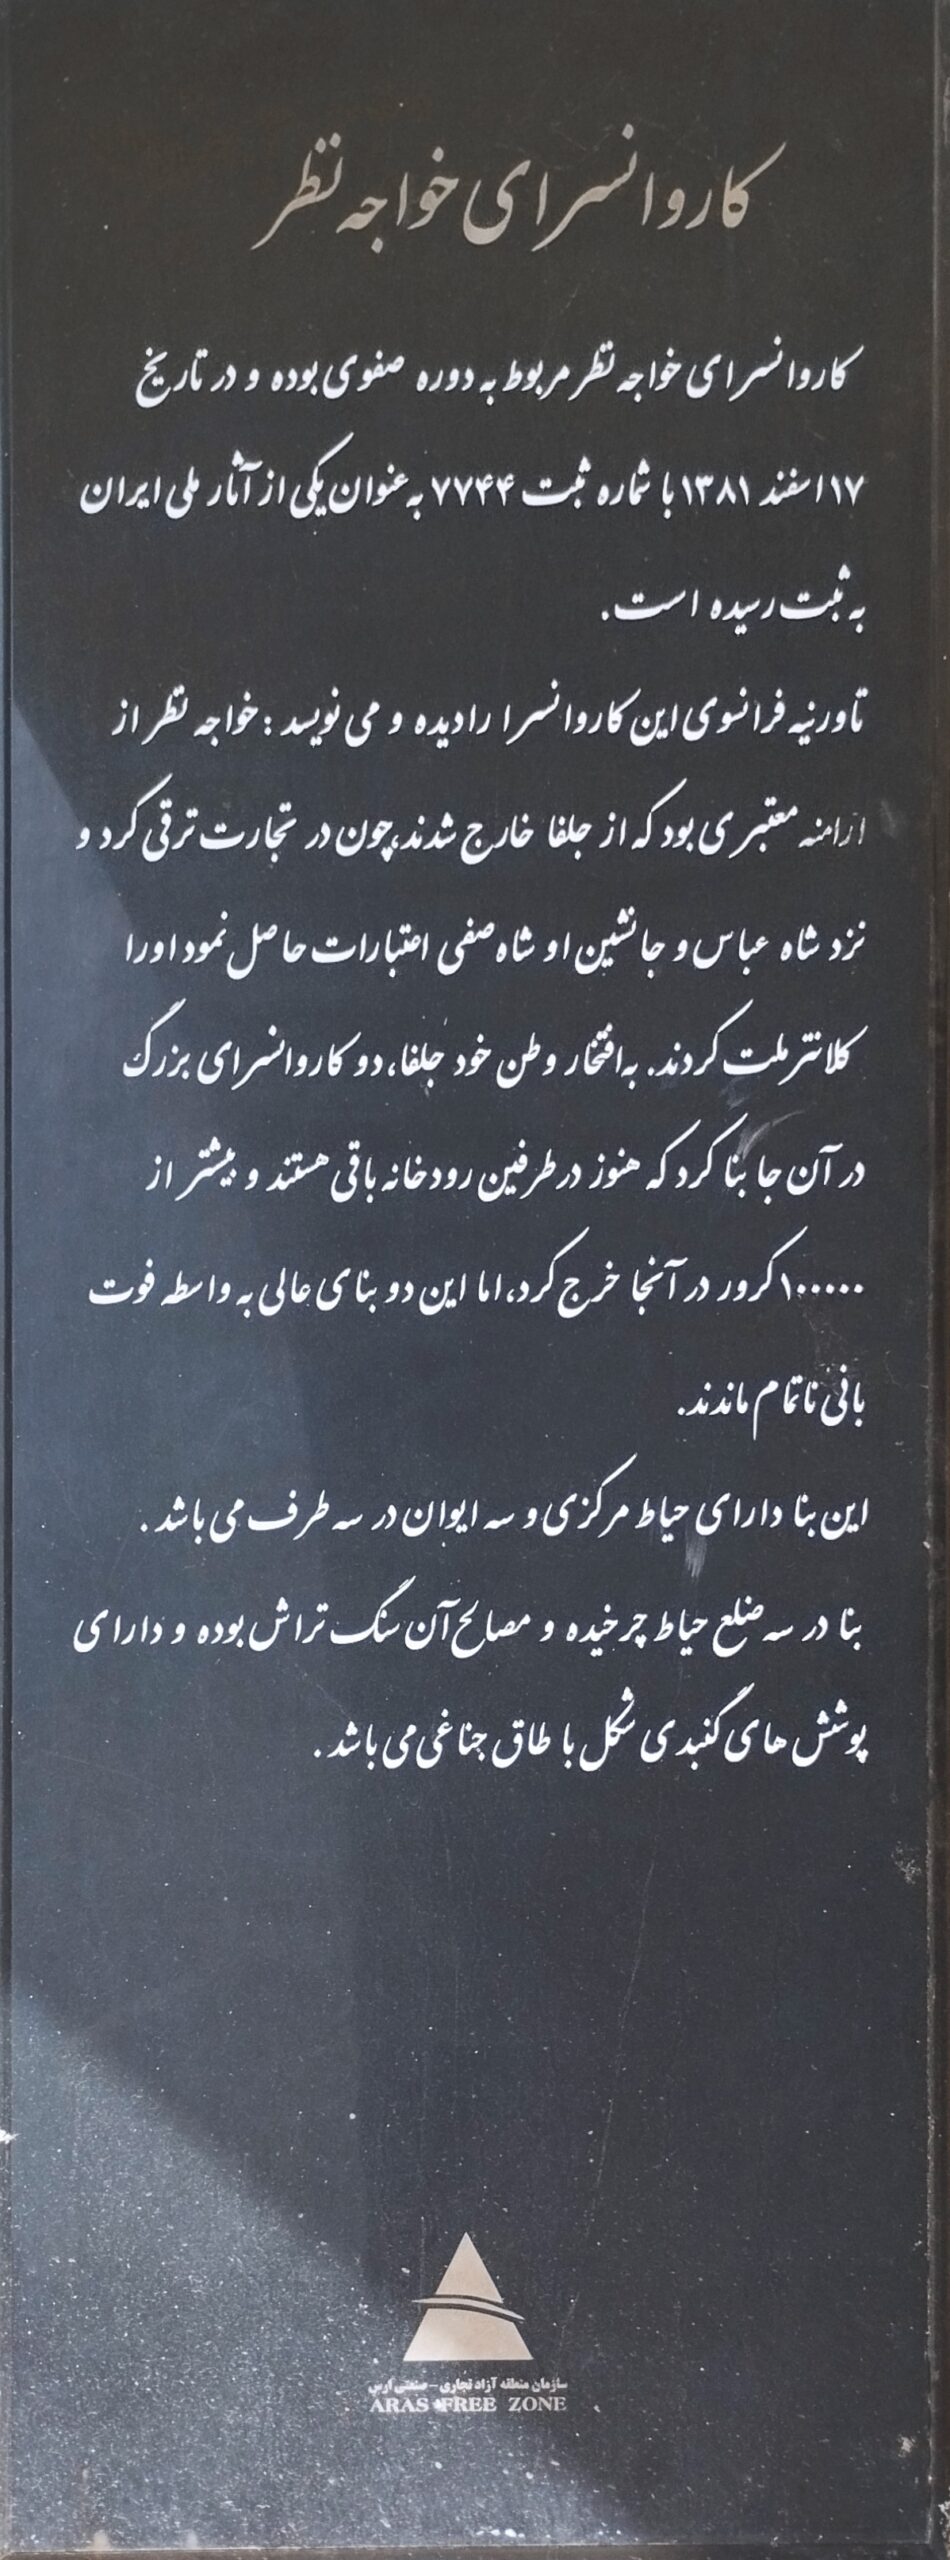 کاروانسرای خواجه نظر
کاروانسرای خواجه نظر مربوط به دوره صفوی بوده و در تاریخ
۱۷ اسفند ۱۳۸۱ با شماره ثبت ۷۷۴۴ به عنوان یکی از آثار ملی ایران
به ثبت رسیده است.
تاورنیه فرانسوی این کاروانسرا را دیده و می نویسد : خواجه نظر از
ارامنه معتبری بود که از جلفا خارج شدند، چون در تجارت ترقی کرد و
نزد شاه عباس و جانشین او شاه صفی اعتبارات حاصل نمود او را
کلانتر ملت کردند. به افتخار وطن خود جلفا، دو کاروانسرای بزرگ
در آن جا بنا کرد که هنوز در طرفین رودخانه باقی هستند و بیشتر از
۱۰۰۰۰۰ کرور در آنجا خرج کرد، اما این دو بنای عالی به واسطه فوت
بانی ناتمام ماندند.
این بنا دارای حیاط مرکزی و سه ایوان در سه طرف می باشد .
بنا در سه ضلع حیاط چرخیده و مصالح آن سنگ تراش بوده و دارای
پوشش های گنبدی شکل با طاق جناغی می باشد .
سازمان منطقه آزاد تجاری - صنعتی ارس
ARAS FREE ZONE